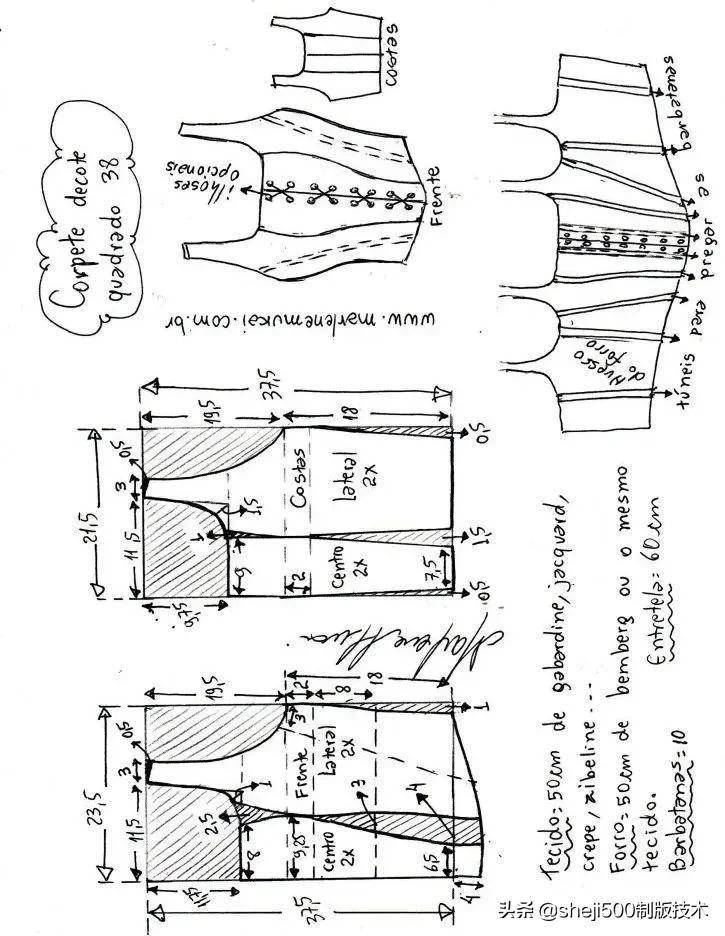 Corpete decote
quadrado 38
ilhoses
opcionais
Frente
costas
barbatanas
pregar as
para
túneis
Avesso
do forro
www.marlenemukai.com.br
37,5
19,5
18
0,5
3
21,5
11,5
9,75
1,5
1
9
2
Costas
Lateral
2x
Centro
2x
7,5
0,5
1,5
0,5
19,5
18
2
8
3
1
0,5
3
23,5
11,5
11,75
2,5
1
8
9,25
Frente
Lateral
2x
Centro
2x
3
4
6,5
4
37,5
Tecido=50cm de gabardine, jacquard,
crepe, zibeline...
Forro=50cm de bemberg ou o mesmo
tecido.
Entretela=60cm
Barbatanas=10
头条 @sheji500制版技术